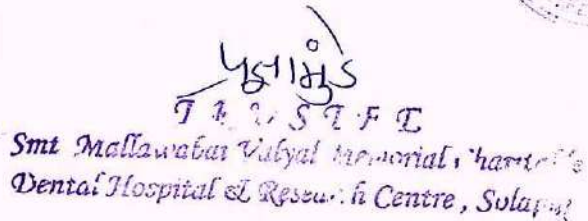 पूजा मुंडे
TRUSTEE
Smt Mallawabai Valyal Memorial Charitable
Dental Hospital & Research Centre, Solapur